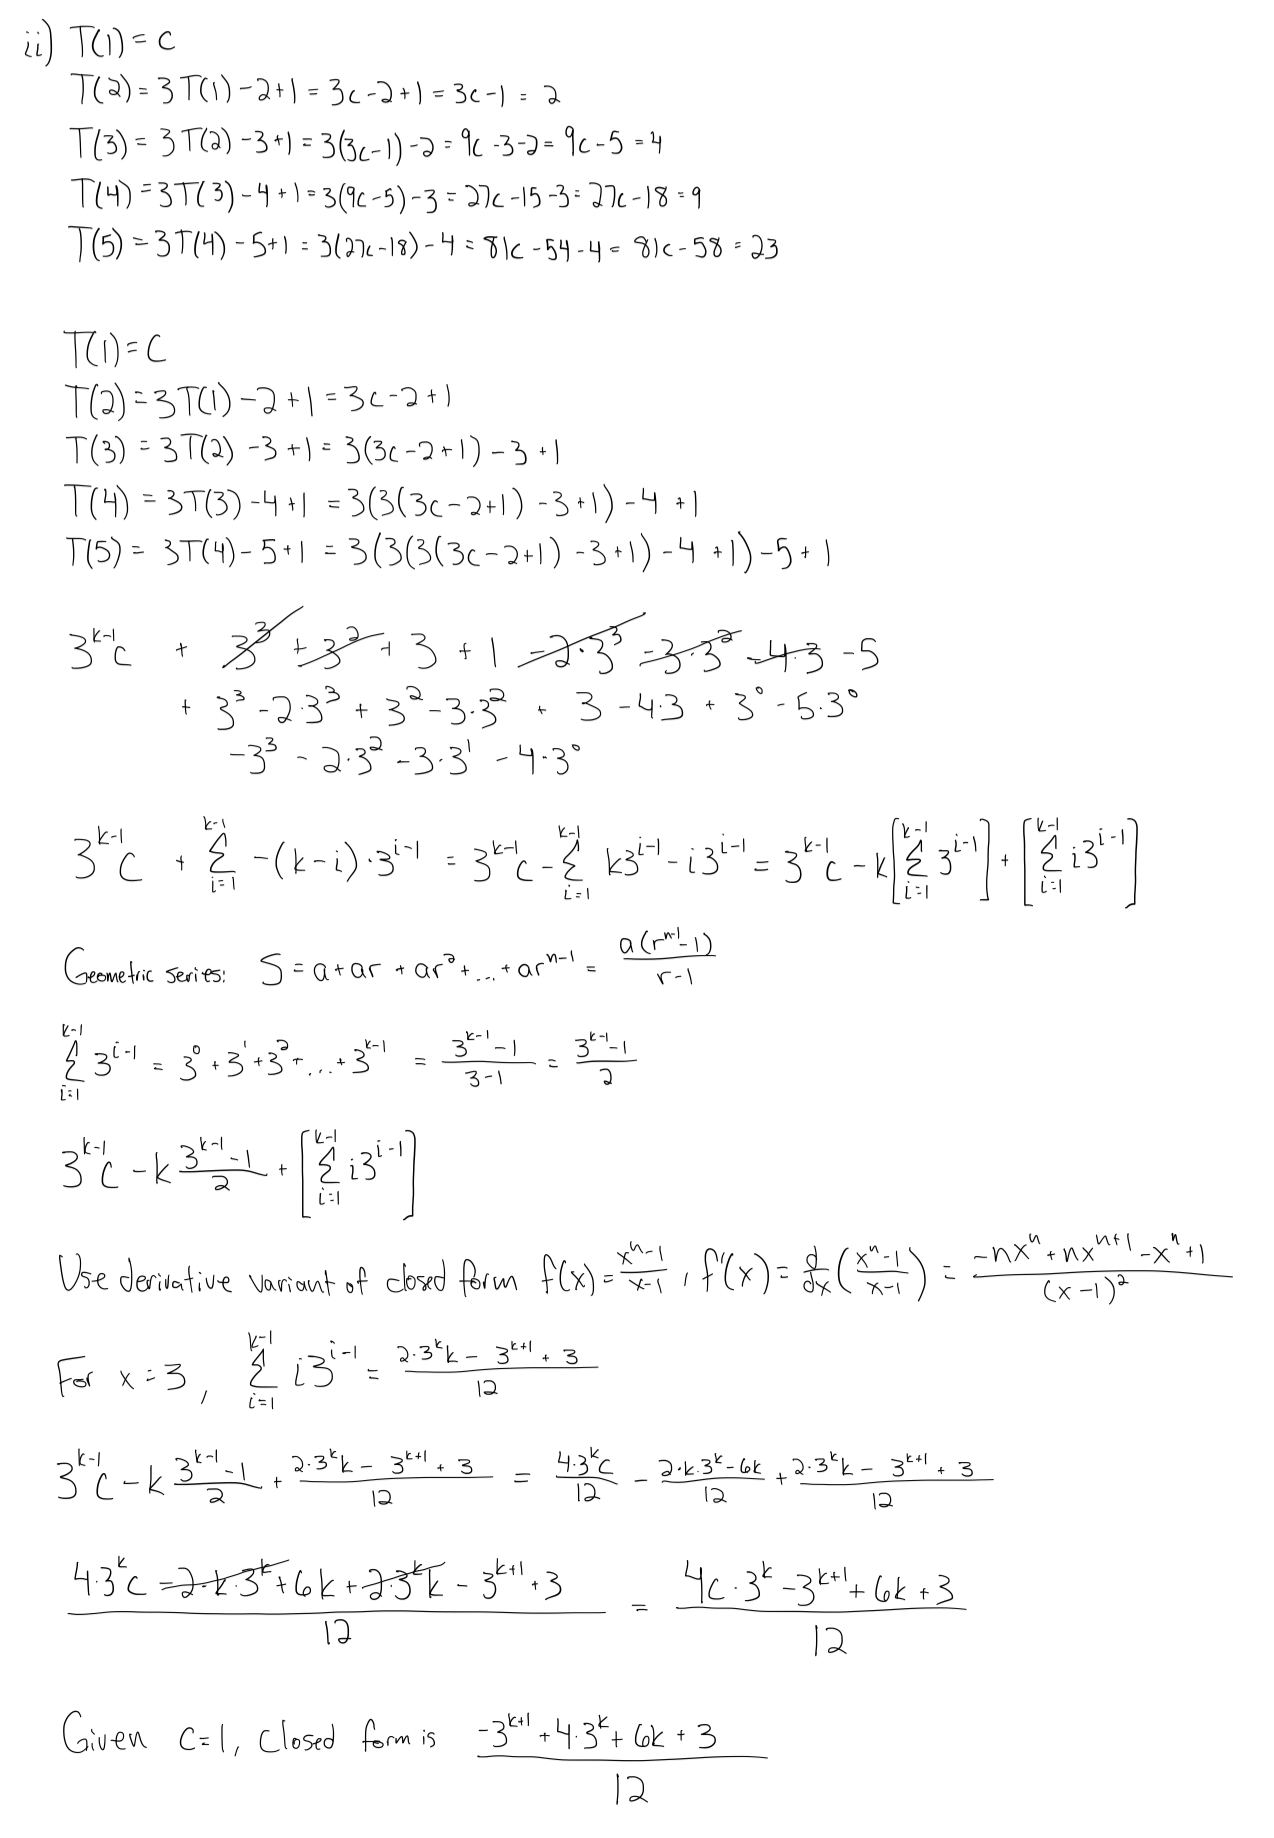 ii) T(1) = c
T(2) = 3T(1) - 2 + 1 = 3c - 2 + 1 = 3c - 1 = 2
T(3) = 3T(2) - 3 + 1 = 3(3c - 1) - 2 = 9c - 3 - 2 = 9c - 5 = 4
T(4) = 3T(3) - 4 + 1 = 3(9c - 5) - 3 = 27c - 15 - 3 = 27c - 18 = 9
T(5) = 3T(4) - 5 + 1 = 3(27c - 18) - 4 = 81c - 54 - 4 = 81c - 58 = 23
T(1) = C
T(2) = 3T(1) - 2 + 1 = 3c - 2 + 1
T(3) = 3T(2) - 3 + 1 = 3(3c - 2 + 1) - 3 + 1
T(4) = 3T(3) - 4 + 1 = 3(3(3c - 2 + 1) - 3 + 1) - 4 + 1
T(5) = 3T(4) - 5 + 1 = 3(3(3(3c - 2 + 1) - 3 + 1) - 4 + 1) - 5 + 1
3^{k-1}c + 3^3 + 3^2 + 3 + 1 - 2·3^3 - 3·3^2 - 4·3 - 5
+ 3^3 - 2·3^3 + 3^2 - 3·3^2 + 3 - 4·3 + 3^0 - 5·3^0
- 3^3 - 2·3^2 - 3·3^1 - 4·3^0
3^{k-1}c + Σ_{i=1}^{k-1} -(k-i)·3^{i-1} = 3^{k-1}c - Σ_{i=1}^{k-1} k3^{i-1} - i3^{i-1} = 3^{k-1}c - k[Σ_{i=1}^{k-1} 3^{i-1}] + [Σ_{i=1}^{k-1} i3^{i-1}]
Geometric series: S = a + ar + ar^2 + ... + ar^{n-1} = a(r^{n-1} - 1)/(r-1)
Σ_{i=1}^{k-1} 3^{i-1} = 3^0 + 3^1 + 3^2 + ... + 3^{k-1} = (3^{k-1} - 1)/(3-1) = (3^{k-1} - 1)/2
3^{k-1}c - k (3^{k-1} - 1)/2 + [Σ_{i=1}^{k-1} i3^{i-1}]
Use derivative variant of closed form f(x) = (x^n - 1)/(x-1), f'(x) = d/dx ((x^n - 1)/(x-1)) = (-nx^n + nx^{n+1} - x^n + 1)/(x-1)^2
For x = 3, Σ_{i=1}^{k-1} i3^{i-1} = (2·3^k k - 3^{k+1} + 3)/12
3^{k-1}c - k (3^{k-1} - 1)/2 + (2·3^k k - 3^{k+1} + 3)/12 = 4·3^k c/12 - (2·k·3^k - 6k)/12 + (2·3^k k - 3^{k+1} + 3)/12
(4·3^k c - 2·k·3^k + 6k + 2·3^k k - 3^{k+1} + 3)/12 = (4c·3^k - 3^{k+1} + 6k + 3)/12
Given c=1, closed form is (-3^{k+1} + 4·3^k + 6k + 3)/12